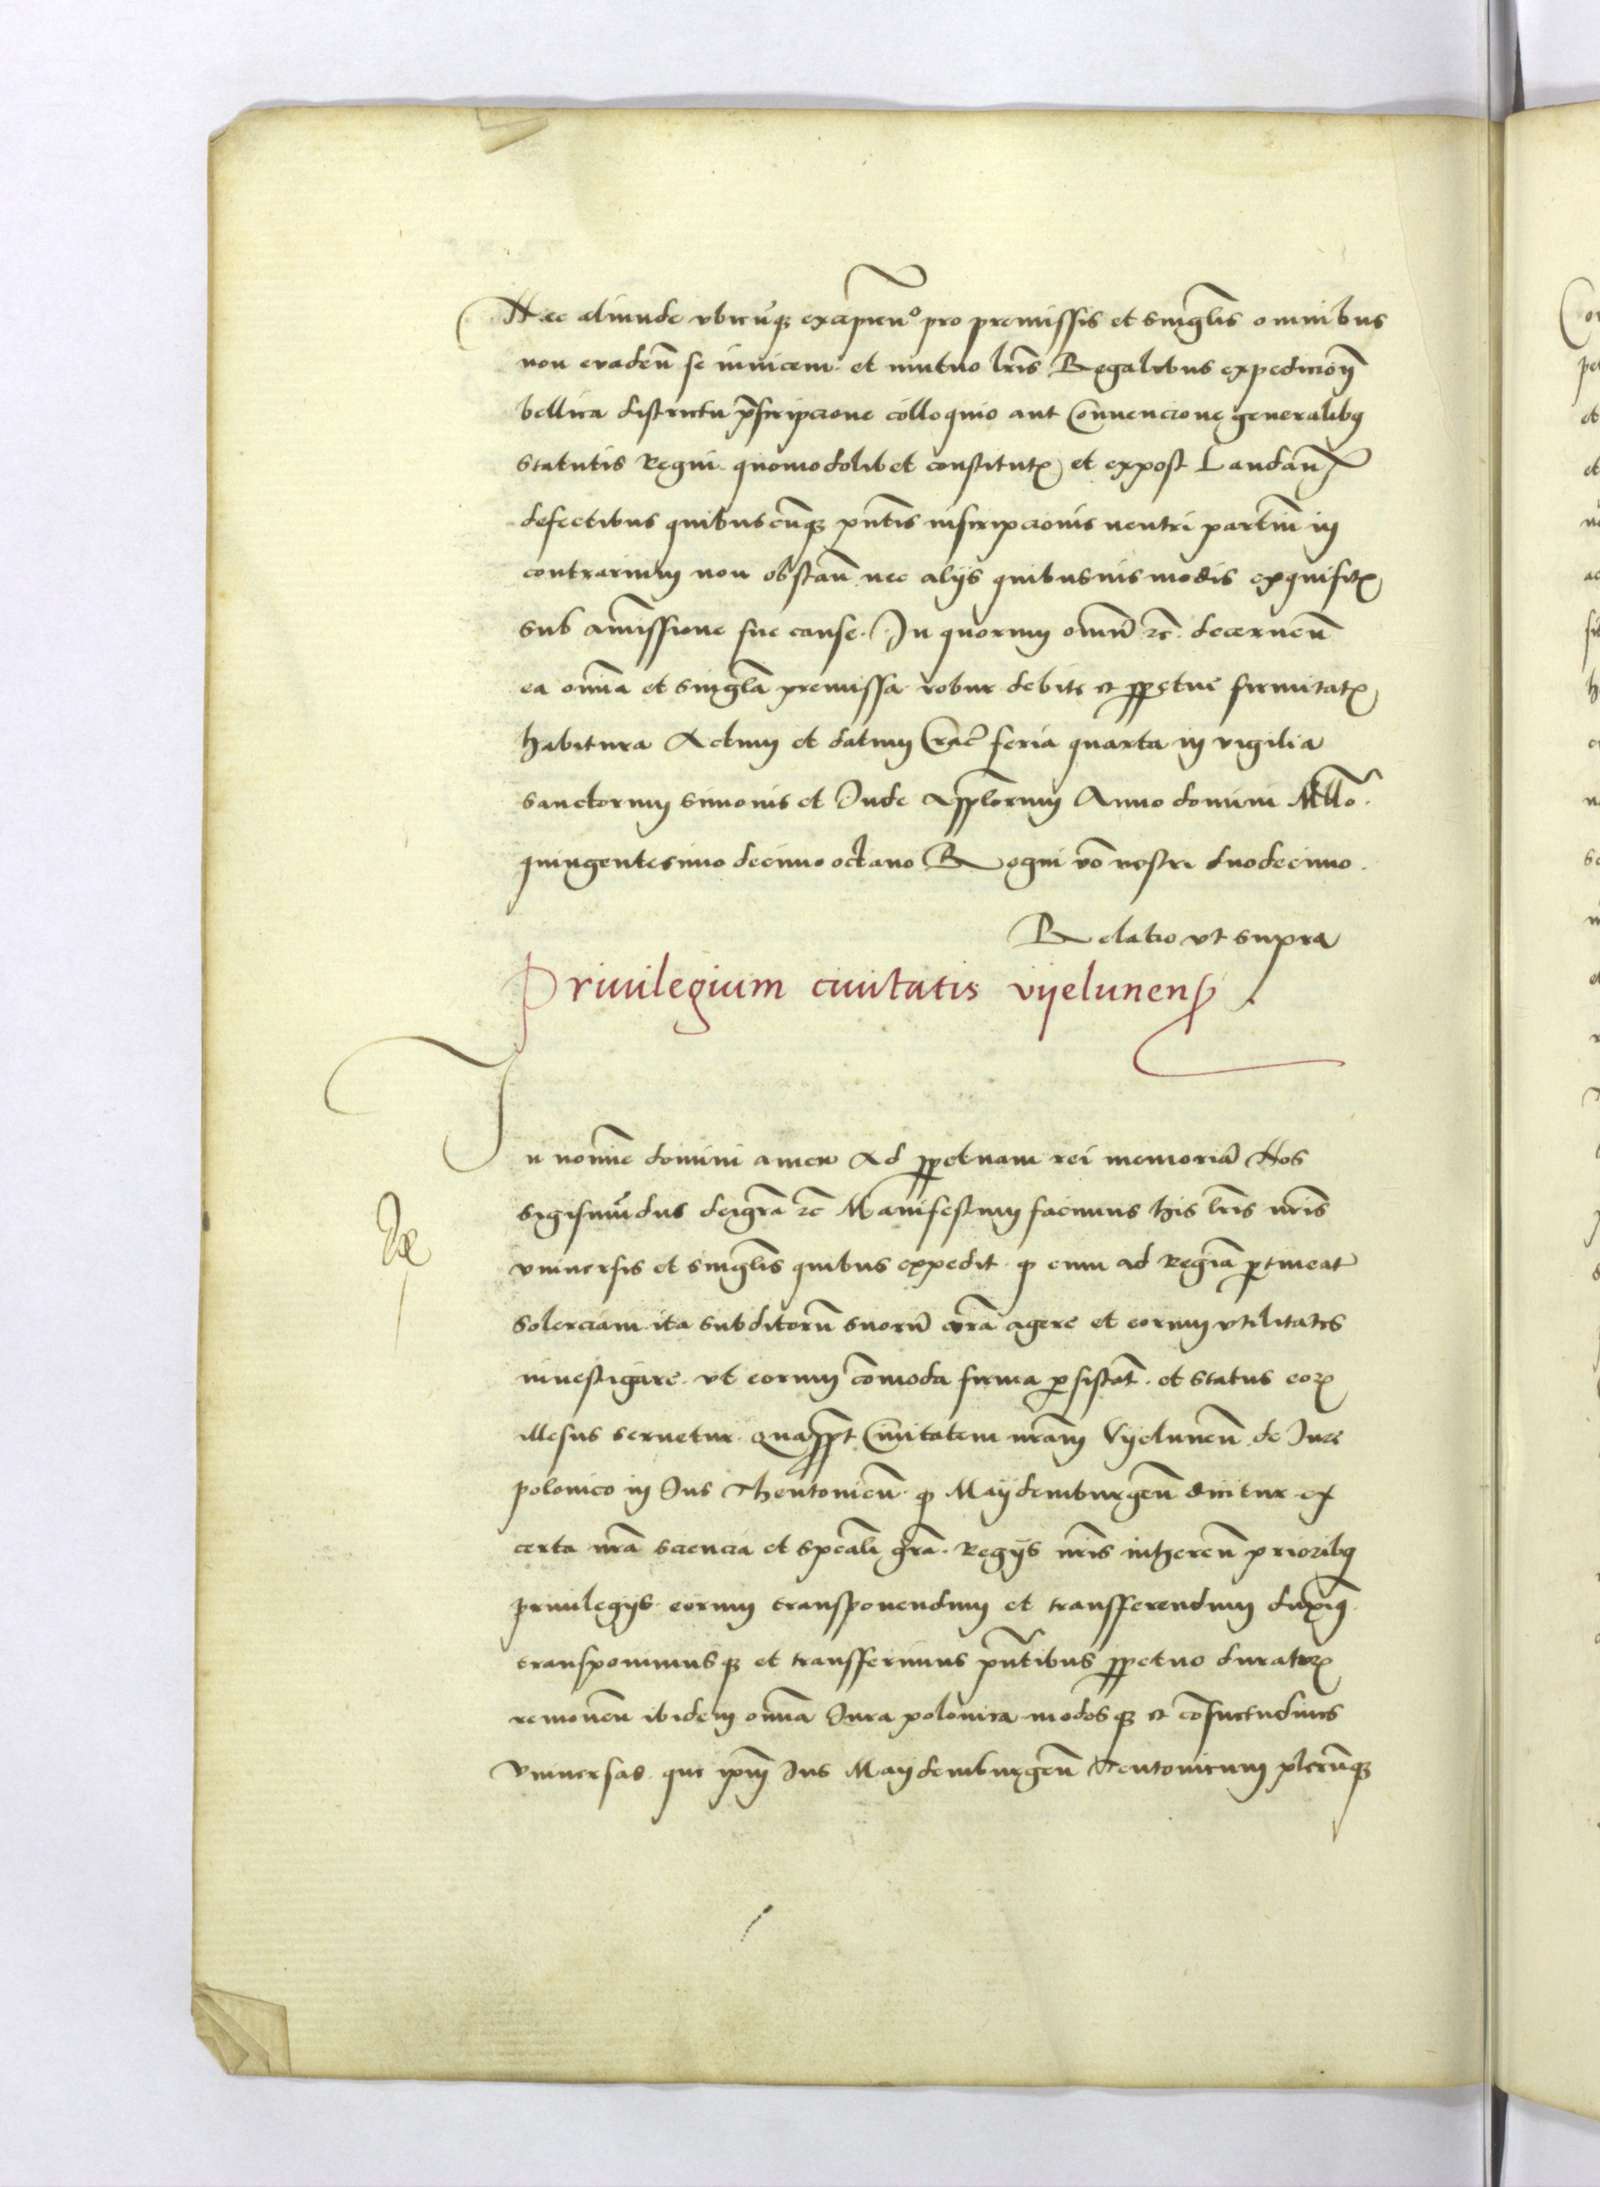 Nec aliunde vbicu̅q̷ excipien̅ᵒ pro premissis et singl̅is omnibus
non euaden̅ se inuicem et mutuo lr̅is Regalibus expedicion̅
bellica districtu p̅scripcione colloquio aut Conuencione generalibꝫ
statutis Regni quomodolibet constitutꝭ et expost Laudan̅
defectibus quibuscu̅q̷ pn̅tis inscripcionis neutri partiu̅ in
contrarium non obstan̅ nec alijs quibusuis modis exquisitꝭ
sub amissione sue cause. In quorum omniu̅ ꝛc̅ decernen̅
ea om̅ia et singl̅a premissa robur debite et ꝑpetue firmitatꝭ
habitura Actum et datum Crac̅ feria quarta in vigilia
sanctorum simonis et Jude App̅lorum Anno domini Mill̅o.
quingentesimo decimo octauo Regni vo̅ nostri duodecimo.
Relatio vt supra
Priuilegium ciuitatis vijelunen̅
In nomi̅e domini amen Ad ꝑpetuam rei memoria̅ Nos
sigismu̅dus dei gr̅a ꝛc̅ Manifestum facimus his lr̅is nr̅is
vniuersis et singl̅is quibus expedit ꝙ cum ad Regia̅ ꝑtineat
solerciam ita subditoru̅ suoru̅ cura̅ agere et eorum vtilitates
inuestigare vt eorum co̅moda firma ꝑsista̅t et status eoꝝ
illesus seruetur quap̅p̅t Ciuitatem nr̅am Vijelunen̅ de Jure
polonico in Jus Theutonicu̅ ꝙ Maijdemburgen̅ dicitur ex
certa nr̅a sciencia et spe̅ali gr̅a Regijs nr̅is inheren̅ prioribꝫ
priuilegijs eorum transponendum et transferendum duximꝫ
transponimusq̷ et transferimus pn̅tibus ꝑpetuo duraturꝭ
remouen̅ ibidem om̅ia Jura polonica modosq̷ et co̅suetudines
vniuersas que ip̅m Jus Maijdemburgen̅ Teutonicum pleru̅q̷